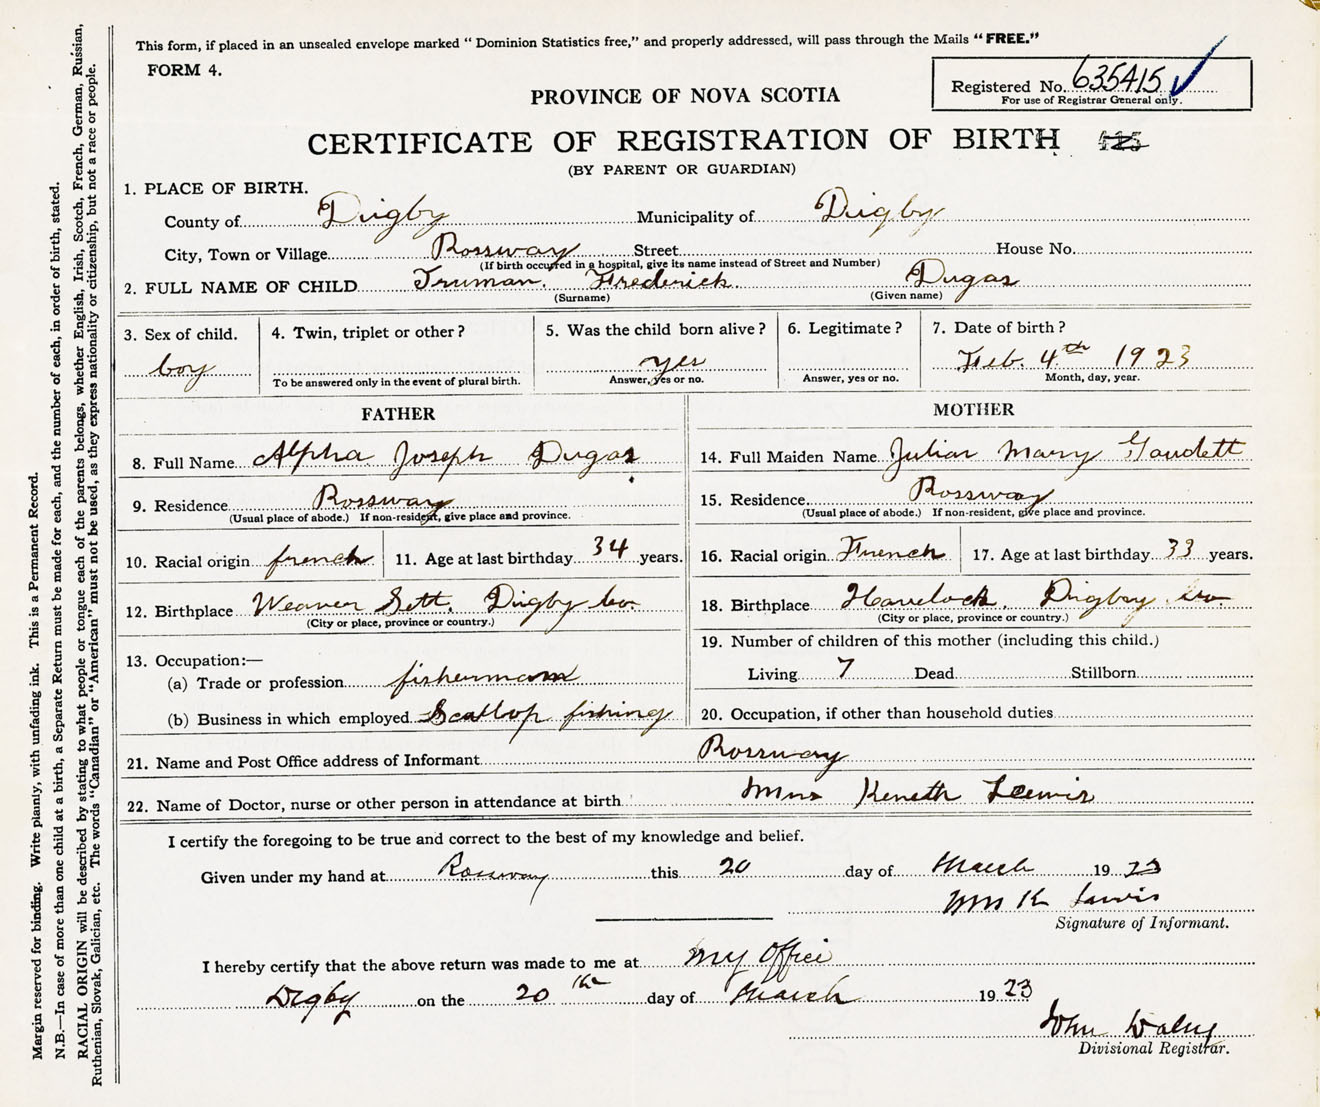 This form, if placed in an unsealed envelope marked "Dominion Statistics free," and properly addressed, will pass through the Mails "FREE."
FORM 4.
Registered No. 635415
For use of Registrar General only.
PROVINCE OF NOVA SCOTIA
CERTIFICATE OF REGISTRATION OF BIRTH
(BY PARENT OR GUARDIAN)
1. PLACE OF BIRTH.
County of Digby Municipality of Digby
City, Town or Village Rossway Street House No.
(If birth occurred in a hospital, give its name instead of Street and Number)
2. FULL NAME OF CHILD Truman Frederick Dugas
(Surname) (Given name)
3. Sex of child. 4. Twin, triplet or other? 5. Was the child born alive? 6. Legitimate? 7. Date of birth?
boy yes Feb. 4th 1923
To be answered only in the event of plural birth. Answer, yes or no. Answer, yes or no. Month, day, year.
FATHER
8. Full Name Alpha Joseph Dugas
9. Residence Rossway
(Usual place of abode.) If non-resident, give place and province.
10. Racial origin french 11. Age at last birthday 34 years.
12. Birthplace Weaver Sett. Digby Co.
(City or place, province or country.)
13. Occupation:—
(a) Trade or profession fisherman
(b) Business in which employed Scallop fishing
MOTHER
14. Full Maiden Name Julian Mary Gaudett
15. Residence Rossway
(Usual place of abode.) If non-resident, give place and province.
16. Racial origin French 17. Age at last birthday 33 years.
18. Birthplace Havelock, Digby Co.
(City or place, province or country.)
19. Number of children of this mother (including this child.)
Living 7 Dead Stillborn
20. Occupation, if other than household duties
21. Name and Post Office address of Informant Rossway
22. Name of Doctor, nurse or other person in attendance at birth Mrs Keneth Lewis
I certify the foregoing to be true and correct to the best of my knowledge and belief.
Given under my hand at Rossway this 20 day of March 1923
Mrs K Lewis
Signature of Informant.
I hereby certify that the above return was made to me at My Office
Digby on the 20th day of March 1923
John Daley
Divisional Registrar.
Margin reserved for binding. Write plainly, with unfading ink. This is a Permanent Record.
N.B.—In case of more than one child at a birth, a Separate Return must be made for each, and the number of each, in order of birth, stated.
RACIAL ORIGIN will be described by stating to what people or tongue each of the parents belongs, whether English, Irish, Scotch, French, German, Russian,
Ruthenian, Slovak, Galician, etc. The words "Canadian" or "American" must not be used, as they express nationality or citizenship, but not a race or people.